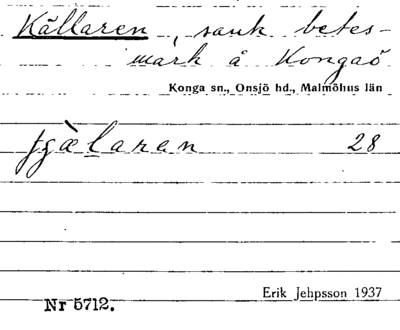 Källaren, sank betes-
mark å Kongaö
Konga sn., Onsjö hd., Malmöhus län
28
Erik Jehpsson 1937
Nr 5712.